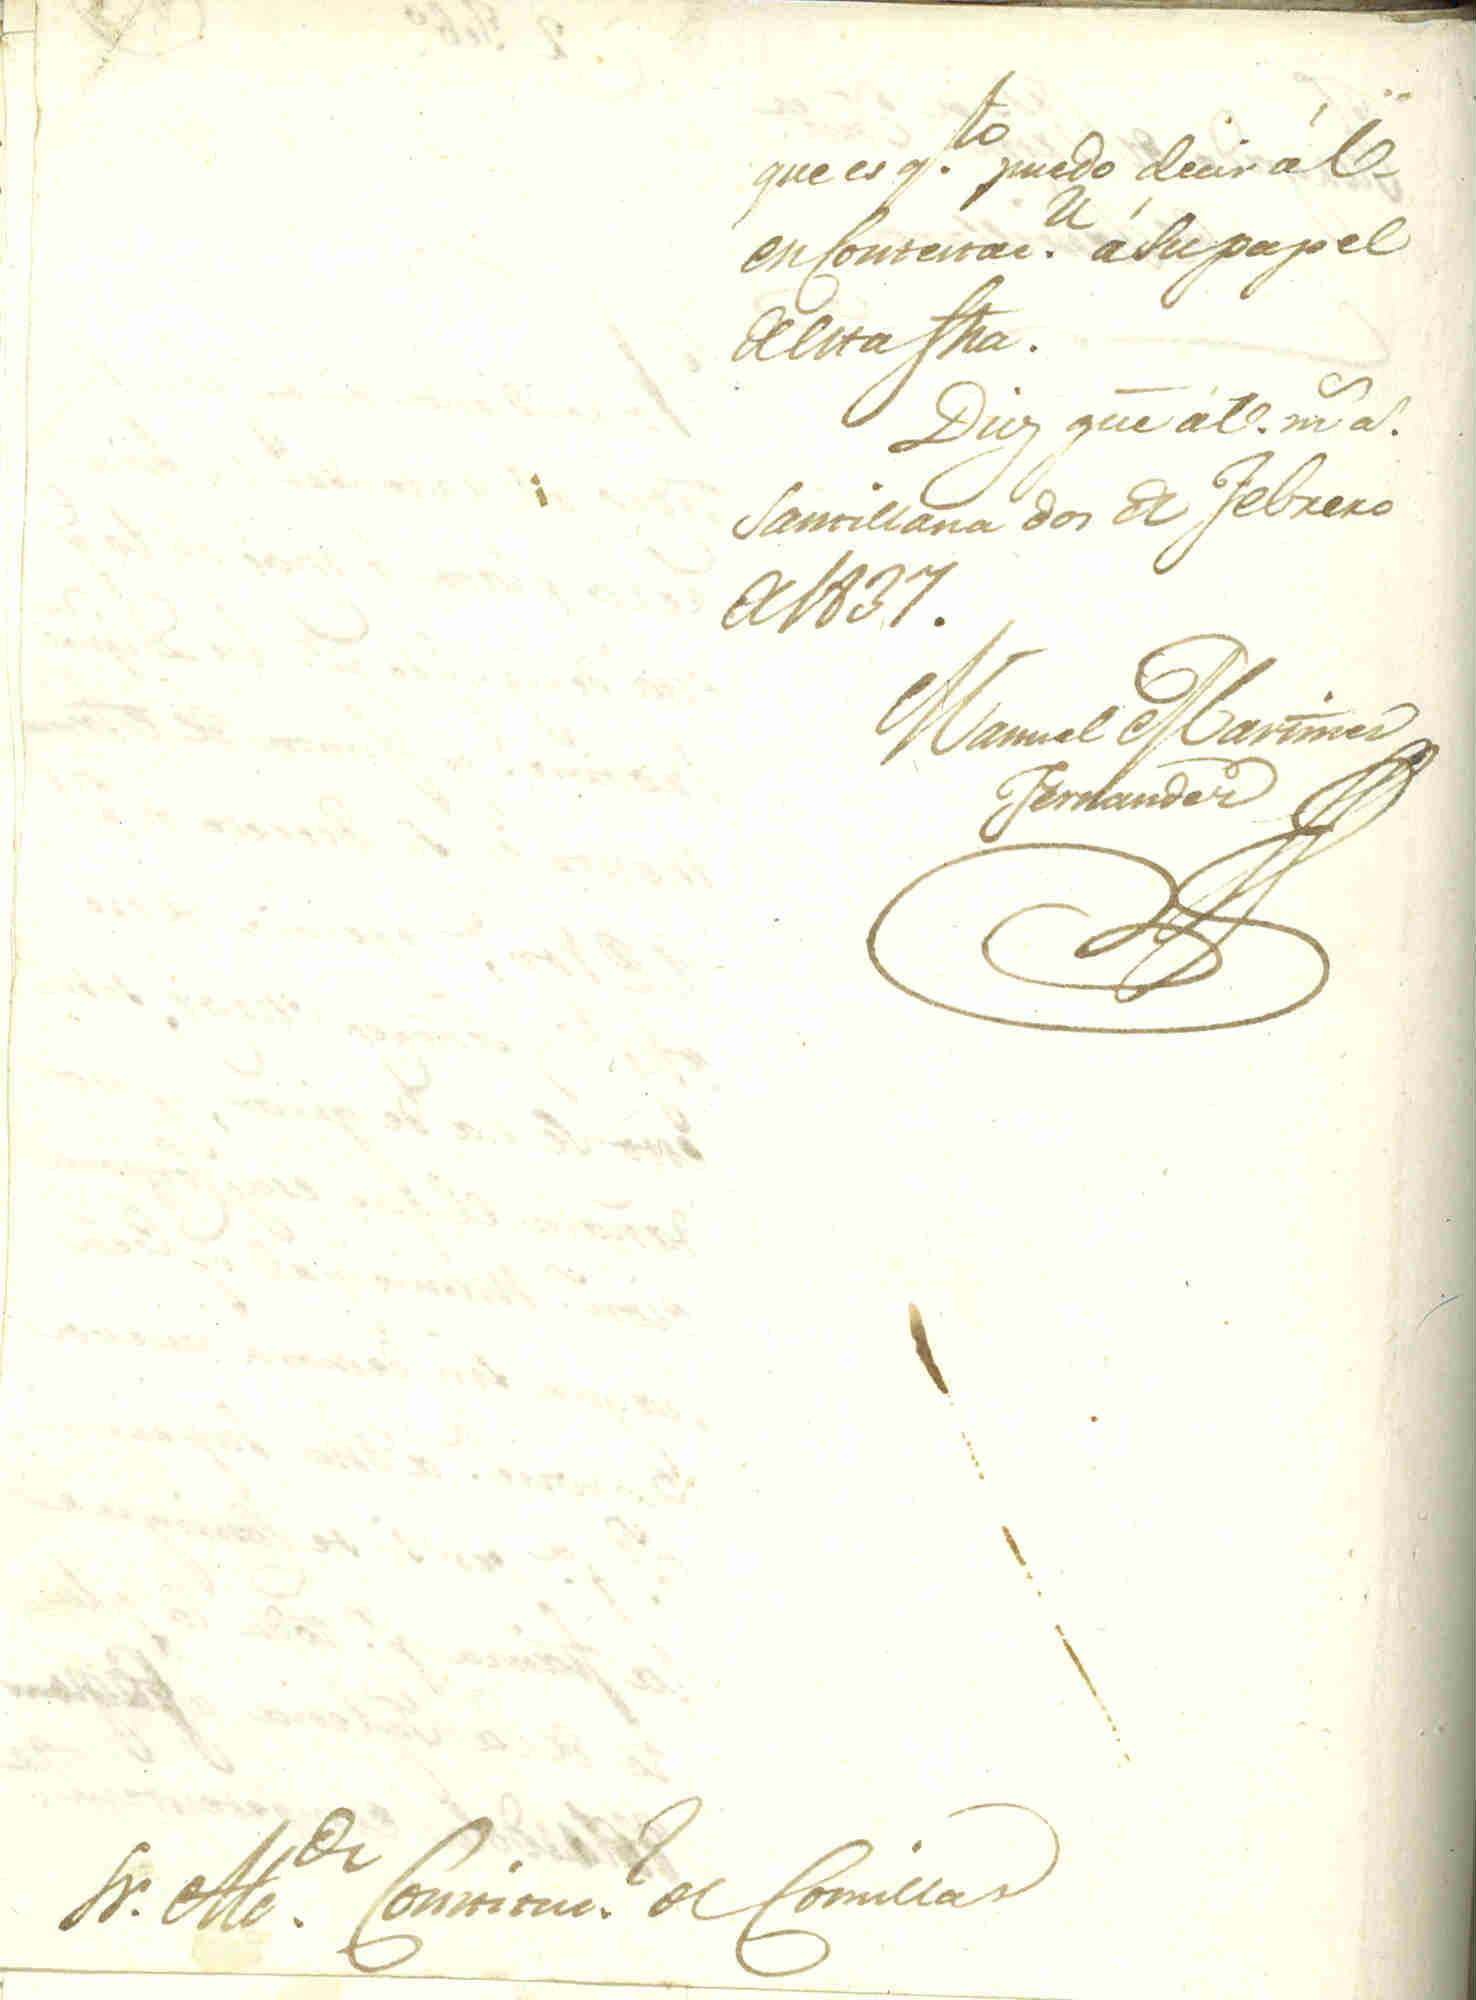 que es q.to puedo decir á V.
en Contestac.n á su papel
de esta fha.
Dios gue á V. m.s a.s
Santillana dos de Febrero
de 1837.
Manuel Martinez
Fernandez
Sr. Alc.de Constituc.l de Comillas